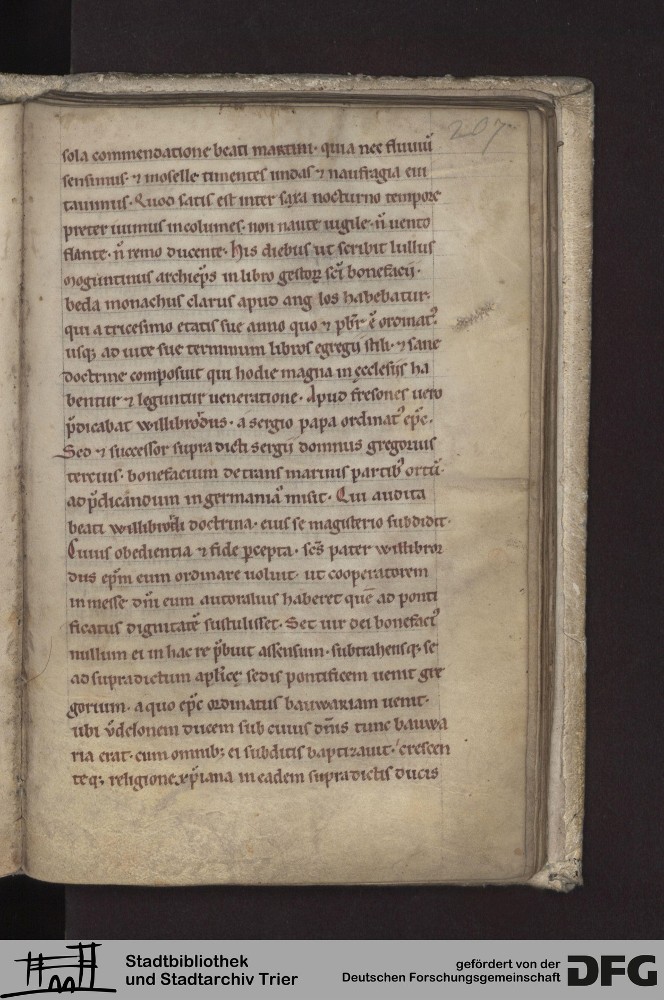 207
sola commendatione beati martini· quia nec fluuiū
sensimus· ⁊ moselle timentes undas ⁊ naufragia eui
tauimus· Quod satis est inter saxa nocturno tempore
preter iuimus incolumes· non naute uigile· n̄ uento
flante· n̄ remo ducente· His diebus ut scribit lullus
mogūntinus archiep̄s in libro gestoꝝ sc̄i bonefacii·
beda monachus clarus apud ang los habebatur·
qui a tricesimo etatis sue anno quo ⁊ pb̄r ē ordinatꝰ
usqꝫ ad uite sue terminum libros egregii stili· ⁊ sane
doctrine composuit qui hodie magna in ęcclesiis ha
bentur ⁊ leguntur ueneratione· Apud fresones uero
p̄dicabat willibrordus· a sergio papa ordinatꝰ ep̄c·
Sed ⁊ successor supra dicti sergii domnus gregorius
tercius· bonefacium de trans marinis partibꝰ ortū·
ad p̄dicandum in germaniā misit· Qui audita
beati willibrordi doctrina· eius se magisterio subdidit·
Cuius obedientia ⁊ fide p̄cepta· sc̄s pater willibror
dus ep̄m eum ordinare uoluit· ut cooperatorem
in messe dn̄i eum autoralius haberet quē ad ponti
ficatus dignitatē sustulisset· Set uir dei bonefactꝰ
nullum ei in hac re p̄buit assensum· subtrahensqꝫ se
ad supradictum aplicę sedis pontificem uenit gre
gorium· a quo ep̄c ordinatus bauwariam uenit·
ubi v̄delonem ducem sub cuius dn̄is tunc bauwa
ria erat· cum omnibꝫ ei subditis baptizauit· crescen
teqꝫ religione xp̄iana in eadem supradictis ducis
Stadtbibliothek
und Stadtarchiv Trier
gefördert von der
Deutschen Forschungsgemeinschaft
DFG